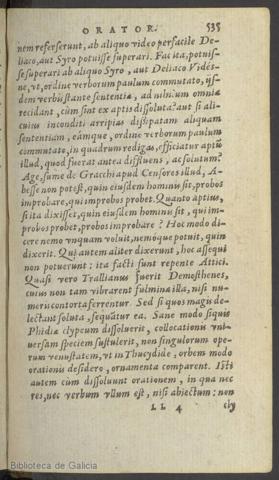 ORATOR. 535
nem referserunt, ab aliquo video perfacile De-
liaco, aut Syro potuisse superari. Fac ita, potuis-
se superari ab aliquo Syro, aut Deliaco Vides-
ne, vt, ordine verborum paulum commutato, ijs-
dem verbis stante sententia, ad nihilum omnia
recidant, cum sint ex aptis dissoluta? aut si ali-
cuius inconditi arripias dissipatam aliquam
sententiam, eamque, ordine verborum paulum
commutato, in quadrum redigas, efficiatur aptũ
illud, quod fuerat antea diffluens, ac solutum?
Age, sume de Gracchi apud Censores illud, A-
besse non potest, quin eiusdem hominis sit, probos
improbare, qui improbos probet. Quanto aptius,
si ita dixisset, quin eiusdem hominis sit, qui im-
probos probet, probos improbare? Hoc modo di-
cere nemo vnquam voluit, nemóque potuit, quin
dixerit. Qui autem aliter dixerunt, hoc assequi
non potuerunt: ita facti sunt repente Attici.
Quasi vero Trallianus fuerit Demosthenes,
cuius non tam vibrarent fulmina illa, nisi nu-
meris contorta ferrentur. Sed si quos magis de-
lectant soluta, sequatur ea. Sane modo siquis
Phidiæ clypeum dissoluerit, collocationis vni-
uersam speciem sustulerit, non singulorum ope-
rum venustatem, vt in Thucydide, orbem modo
orationis desidero, ornamenta comparent. Isti
autem cum dissoluunt orationem, in qua nec
res, nec verbum vllum est, nisi abiectum: non
LL 4 cly
Biblioteca de Galicia